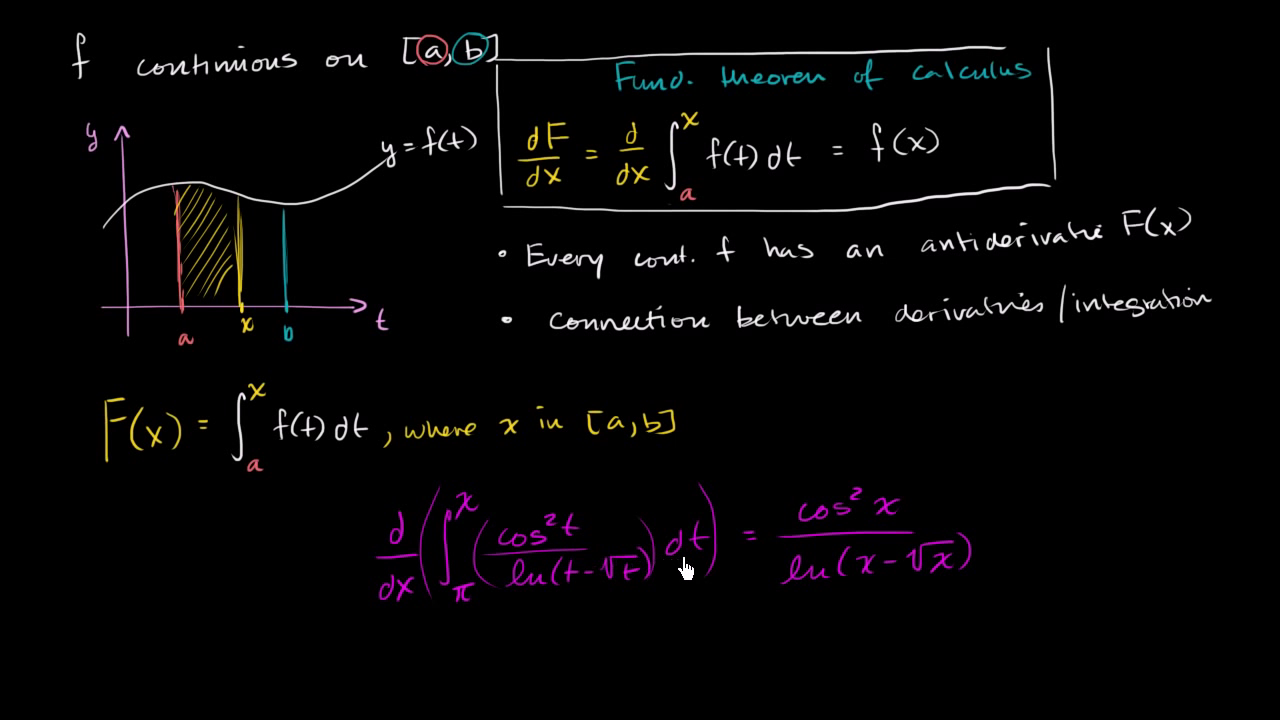 f continuous on [a, b]
Fund. theorem of calculus
dF/dx = d/dx ∫ₐˣ f(t) dt = f(x)
y
y = f(t)
a x b t
• Every cont. f has an antiderivative F(x)
• connection between derivatives/integration
F(x) = ∫ₐˣ f(t) dt, where x in [a,b]
d/dx (∫_π^x (cos²t / ln(t-√t)) dt) = cos²x / ln(x-√x)